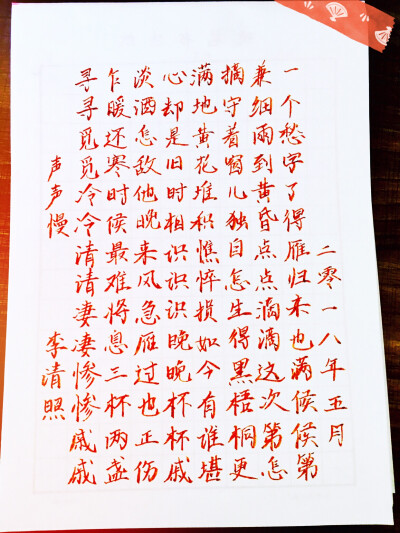 声声慢 李清照
寻寻觅觅冷冷清清凄凄惨惨戚戚
乍暖还寒时候最难将息三杯两盏
淡酒怎敌他晚来风急雁过也正伤
心却是旧时相识识识晚晚杯杯戚
满地黄花堆积憔悴损如今有谁堪
摘守着窗儿独自怎生得黑梧桐更
兼细雨到黄昏点点滴滴这次第怎
一个愁字了得雁归来也满候候第
二零一八年五月